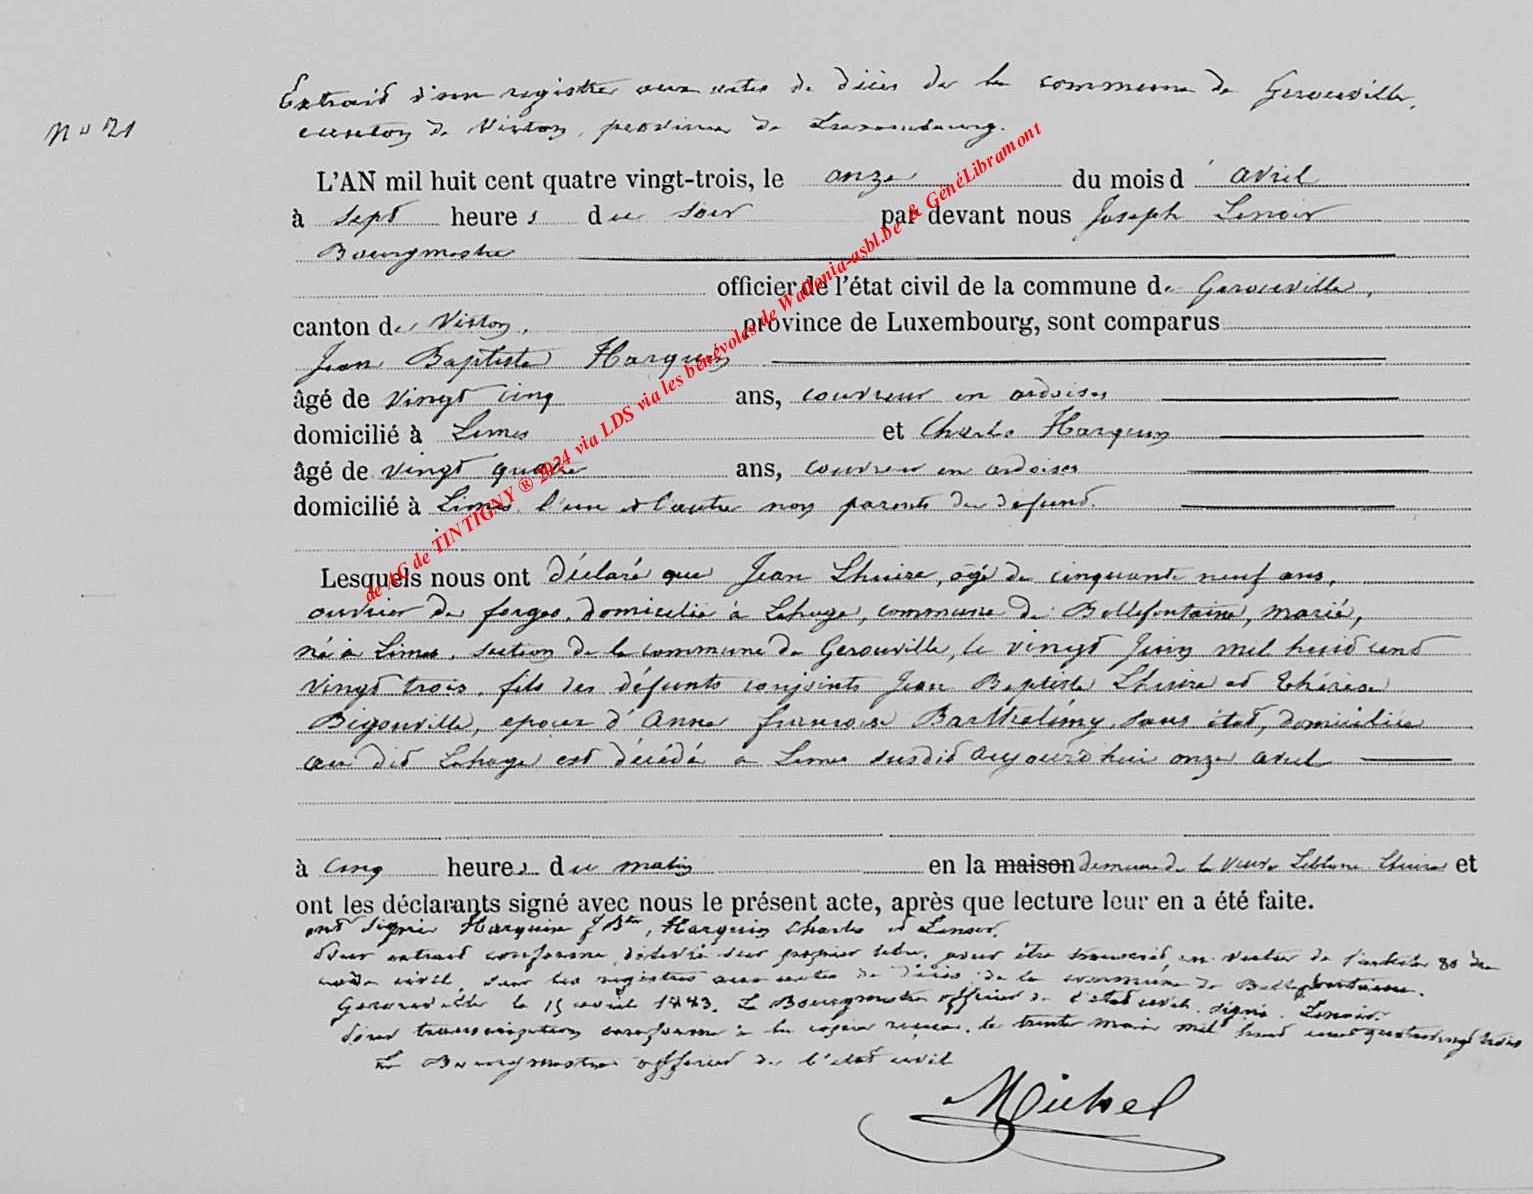 Extrait d'un registre aux actes de décès de la commune de Gerouville,
n° 21
canton de Virton, province de Luxembourg.
L'AN mil huit cent quatre vingt-trois, le onze du mois d'avril
à sept heures du soir par devant nous Joseph Lenoir
Bourgmestre
officier de l'état civil de la commune de Gerouville,
canton de Virton, province de Luxembourg, sont comparus
Jean Baptiste Harquin
âgé de vingt cinq ans, couvreur en ardoises
domicilié à Limes et Charles Harquin
âgé de vingt quatre ans, couvreur en ardoises
domicilié à Limes, l'un et l'autre non parents du défunt.
Lesquels nous ont déclaré que Jean Lhuire, âgé de cinquante neuf ans,
ouvrier de forges, domicilié à Lahage, commune de Bellefontaine, marié,
né à Limes, section de la commune de Gerouville, le vingt Juin mil huit cent
vingt trois, fils des défunts conjoints Jean Baptiste Lhuire et Thérèse
Bigonville, époux d'Anne françoise Barthelémy, sans état, domiciliée
au dit Lahage est décédé à Limes susdit aujourd'hui onze avril
à cinq heures du matin en la maison demeure de la veuve Leblanc Lhuire et
ont les déclarants signé avec nous le présent acte, après que lecture leur en a été faite.
ont signé Harquin J Bte, Harquin Charles et Lenoir.
Pour extrait conforme délivré sur papier libre, pour être transcrit, en vertu de l'article 80 du
code civil, sur les registres aux actes de décès de la commune de Bellefontaine.
Gerouville le 15 avril 1883. Le Bourgmestre officier de l'état civil, signé. Lenoir.
Pour transcription conforme à la copie reçue, le trente mai mil huit cent quatrevingt trois
Le Bourgmestre officier de l'état civil
Michel
de AG de TINTIGNY ® 2024 via LDS via les bénévoles de Wallonia-asbl.be & GénéLibramont